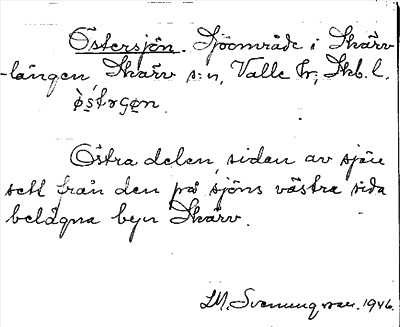 Östersjön. Sjöområde i Skärv
-lången Skärv s:n, Valle hr, Skb. l.
Östra delen, sidan av sjön
sett från den på sjöns västra sida
belägna byn Skärv.
M. Svenungsson. 1946.